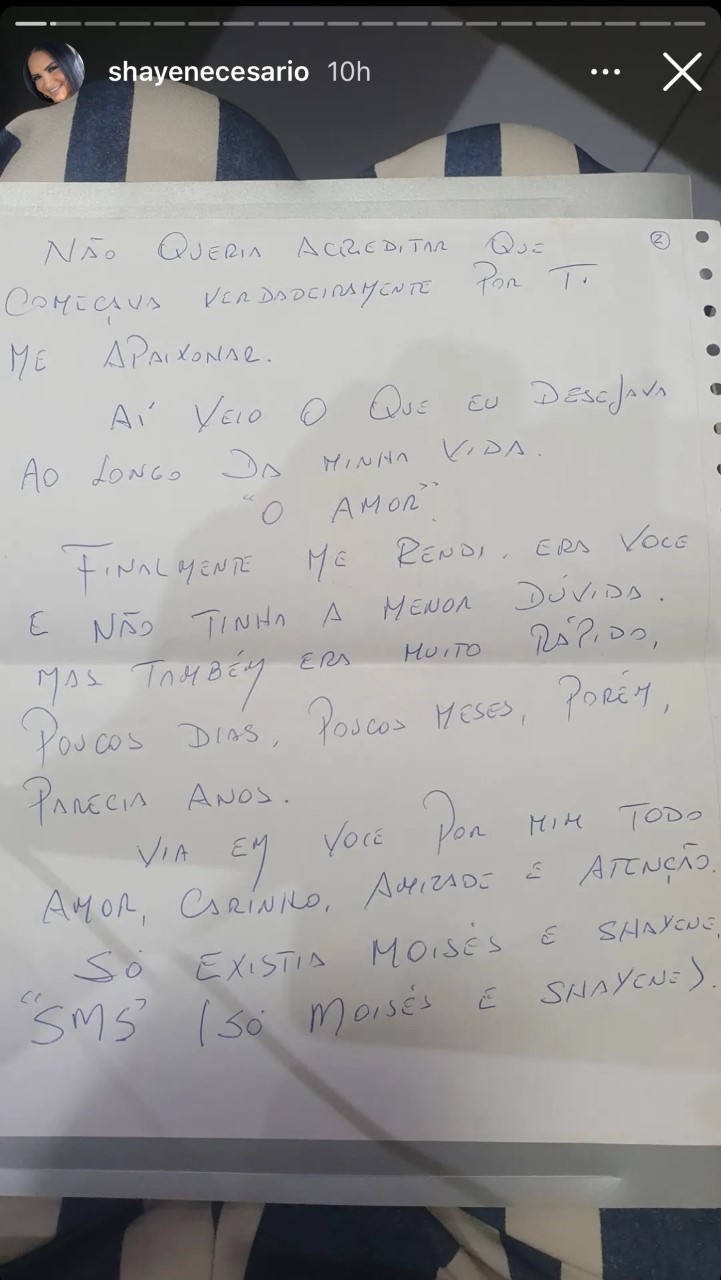 shayenecesario 10h
NÃO QUERIA ACREDITAR QUE
2
COMEÇAVA VERDADEIRAMENTE POR TI
ME APAIXONAR.
AÍ VEIO O QUE EU DESEJAVA
AO LONGO DA MINHA VIDA.
"O AMOR".
FINALMENTE ME RENDI. ERA VOCE
E NÃO TINHA A MENOR DÚVIDA.
MAS TAMBÉM ERA MUITO RÁPIDO,
POUCOS DIAS, POUCOS MESES, PORÉM,
PARECIA ANOS.
VIA EM VOCE POR MIM TODO
AMOR, CARINHO, AMIZADE E ATENÇÃO.
SÓ EXISTIA MOISÉS E SHAYENE,
"SMS" (SÓ MOISÉS E SHAYENE).